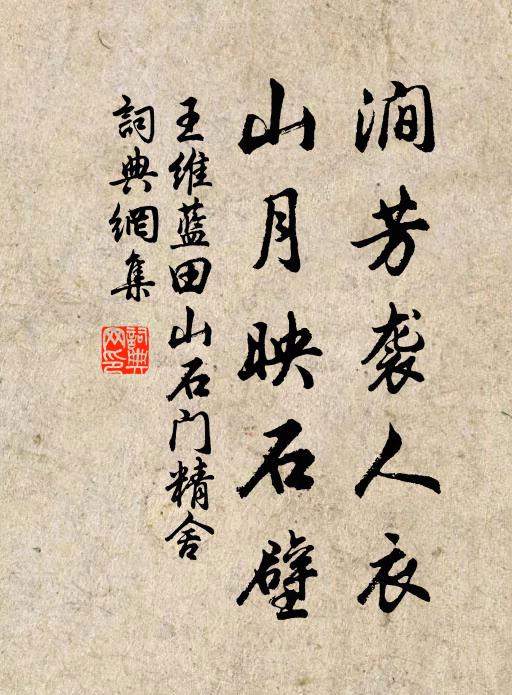 澗芳袭人衣
山月映石壁
王维蓝田山石门精舍
詞典網集
詞典網印